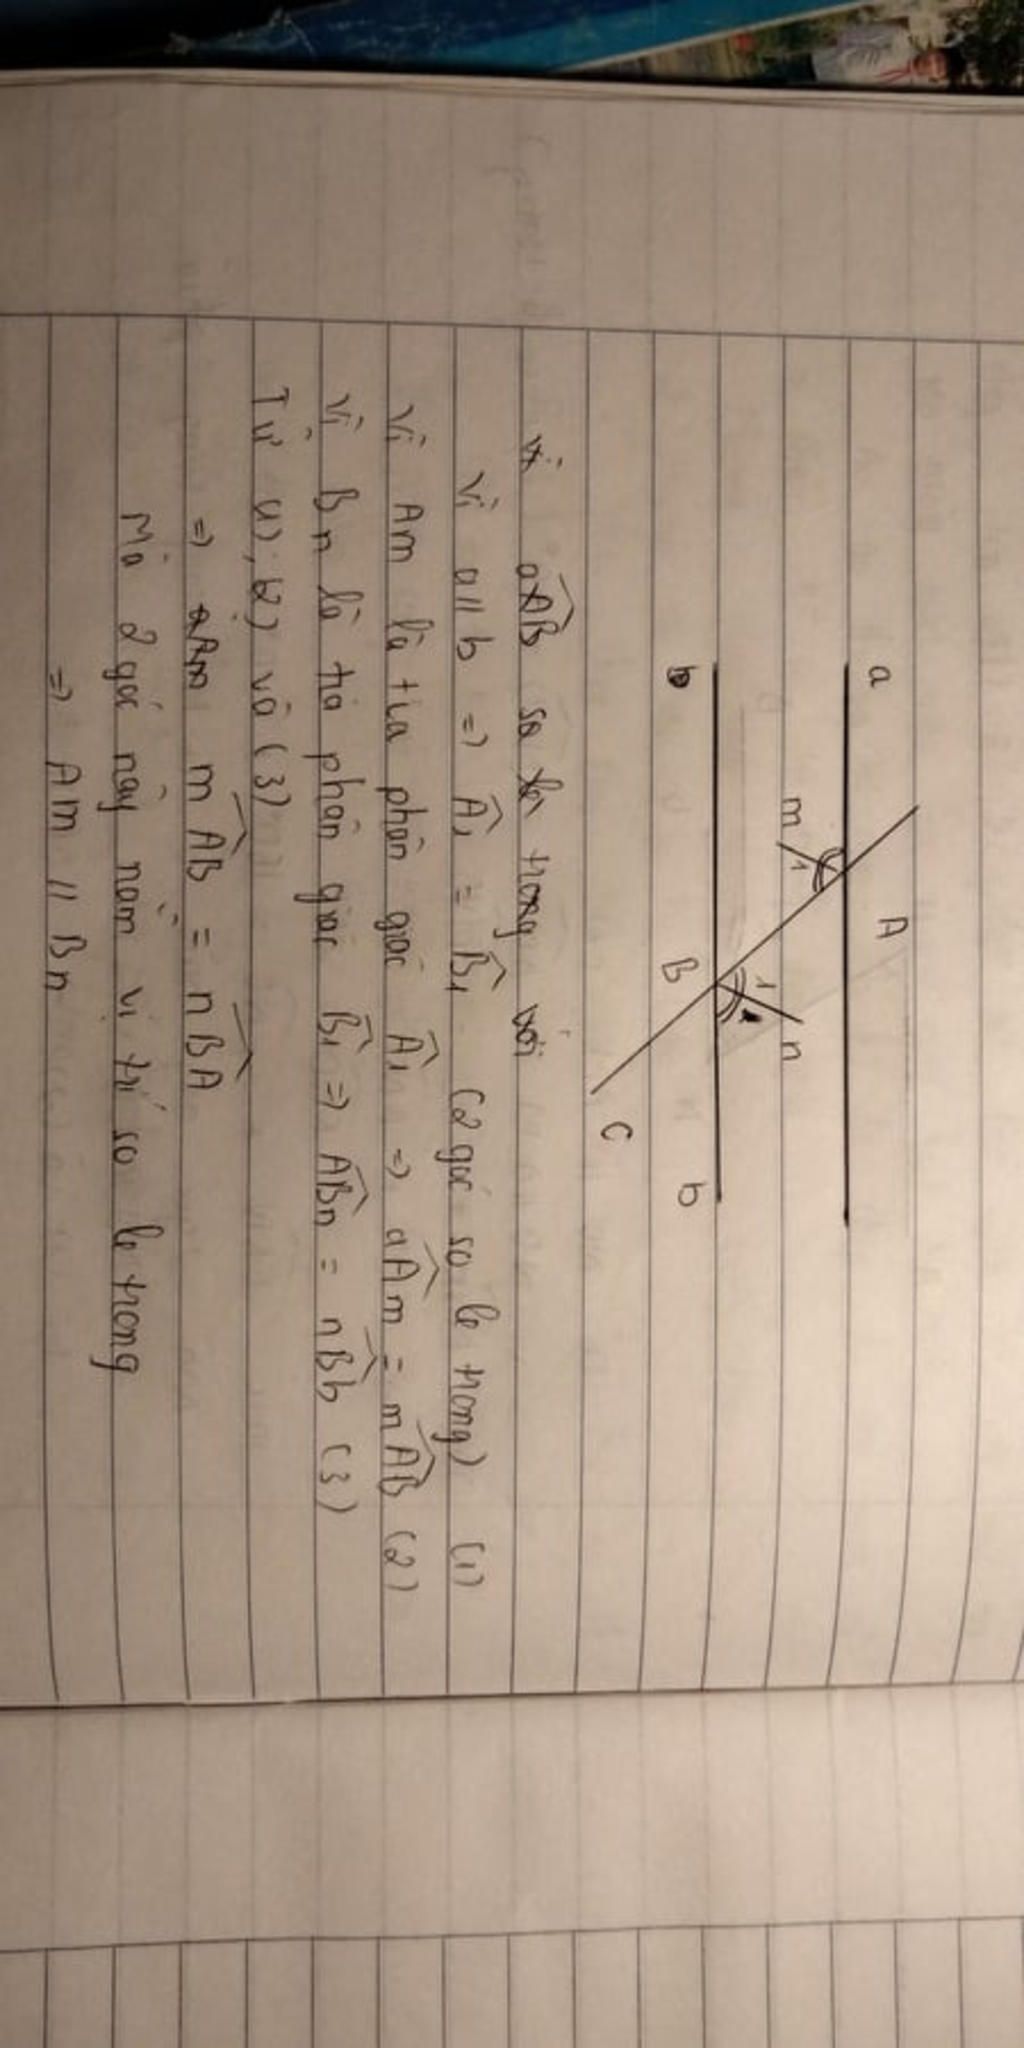 a
A
m
1
1
n
B
b
b
c
Vì aAB so le trong với
Vì a // b => Â₁ = B̂₁ (2 góc so le trong) (1)
Vì Am là tia phân giác Â₁ => aÂm = mÂB (2)
Vì Bn là tia phân giác B̂₁ => AB̂n = nB̂b (3)
Từ (1), (2) và (3)
=> aAm mÂB = nB̂A
Mà 2 góc này nằm vị trí so le trong
=> Am // Bn